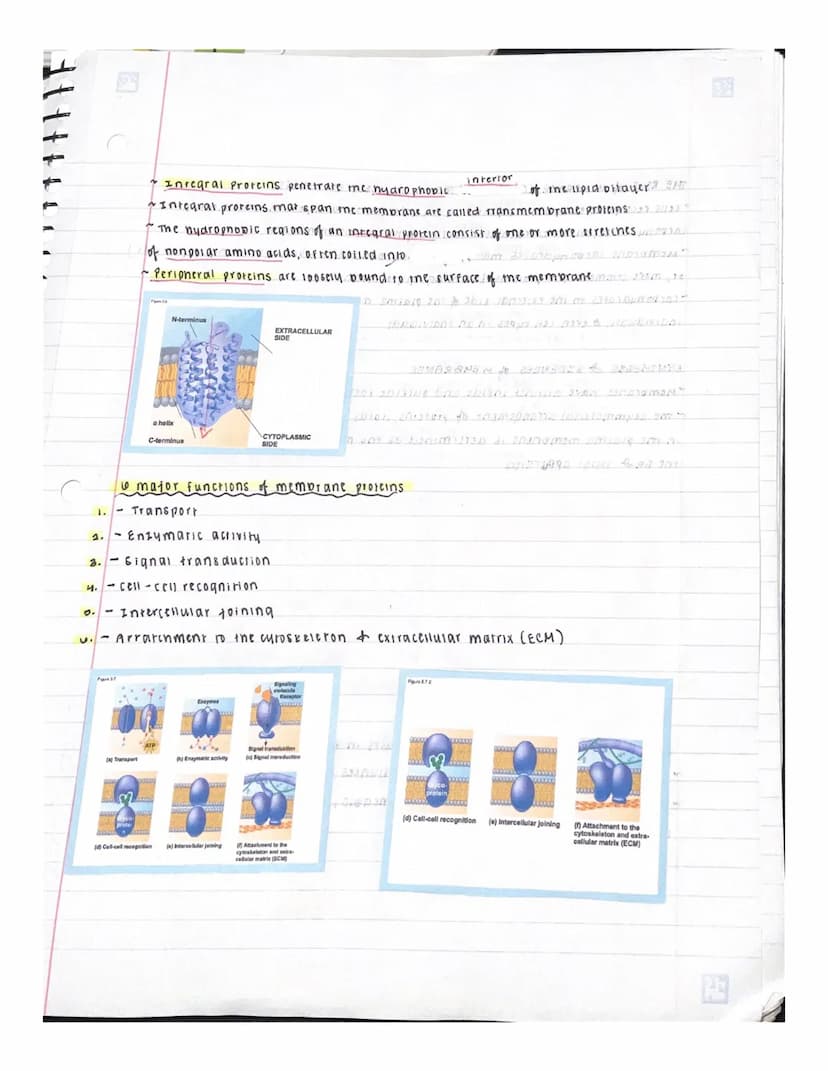 ~ Integral Proteins penetrate the hydrophobic interior of the lipid bilayer
~ Integral proteins that span the membrane are called transmembrane proteins
~ The hydrophobic regions of an integral protein consist of one or more stretches
of nonpolar amino acids, often coiled into
~ Peripheral proteins are loosely bound to the surface of the membrane
N-terminus
EXTRACELLULAR
SIDE
α helix
C-terminus
CYTOPLASMIC
SIDE
6 major functions of membrane proteins
1. - Transport
2. - Enzymatic activity
3. - Signal transduction
4. - Cell-cell recognition
5. - Intercellular joining
6. - Attatchment to the cytoskeleton + extracellular matrix (ECM)
Figure 5.7
Signaling
molecule
Receptor
Enzymes
ATP
Signal transduction
(a) Transport
(b) Enzymatic activity
(c) Signal transduction
Glyco-
protei
n
(d) Cell-cell recognition
(e) Intercellular joining
(f) Attachment to the
cytoskeleton and extra-
cellular matrix (ECM)
Figure 5.7 2
Glyco-
protein
(d) Cell-cell recognition
(e) Intercellular joining
(f) Attachment to the
cytoskeleton and extra-
cellular matrix (ECM)